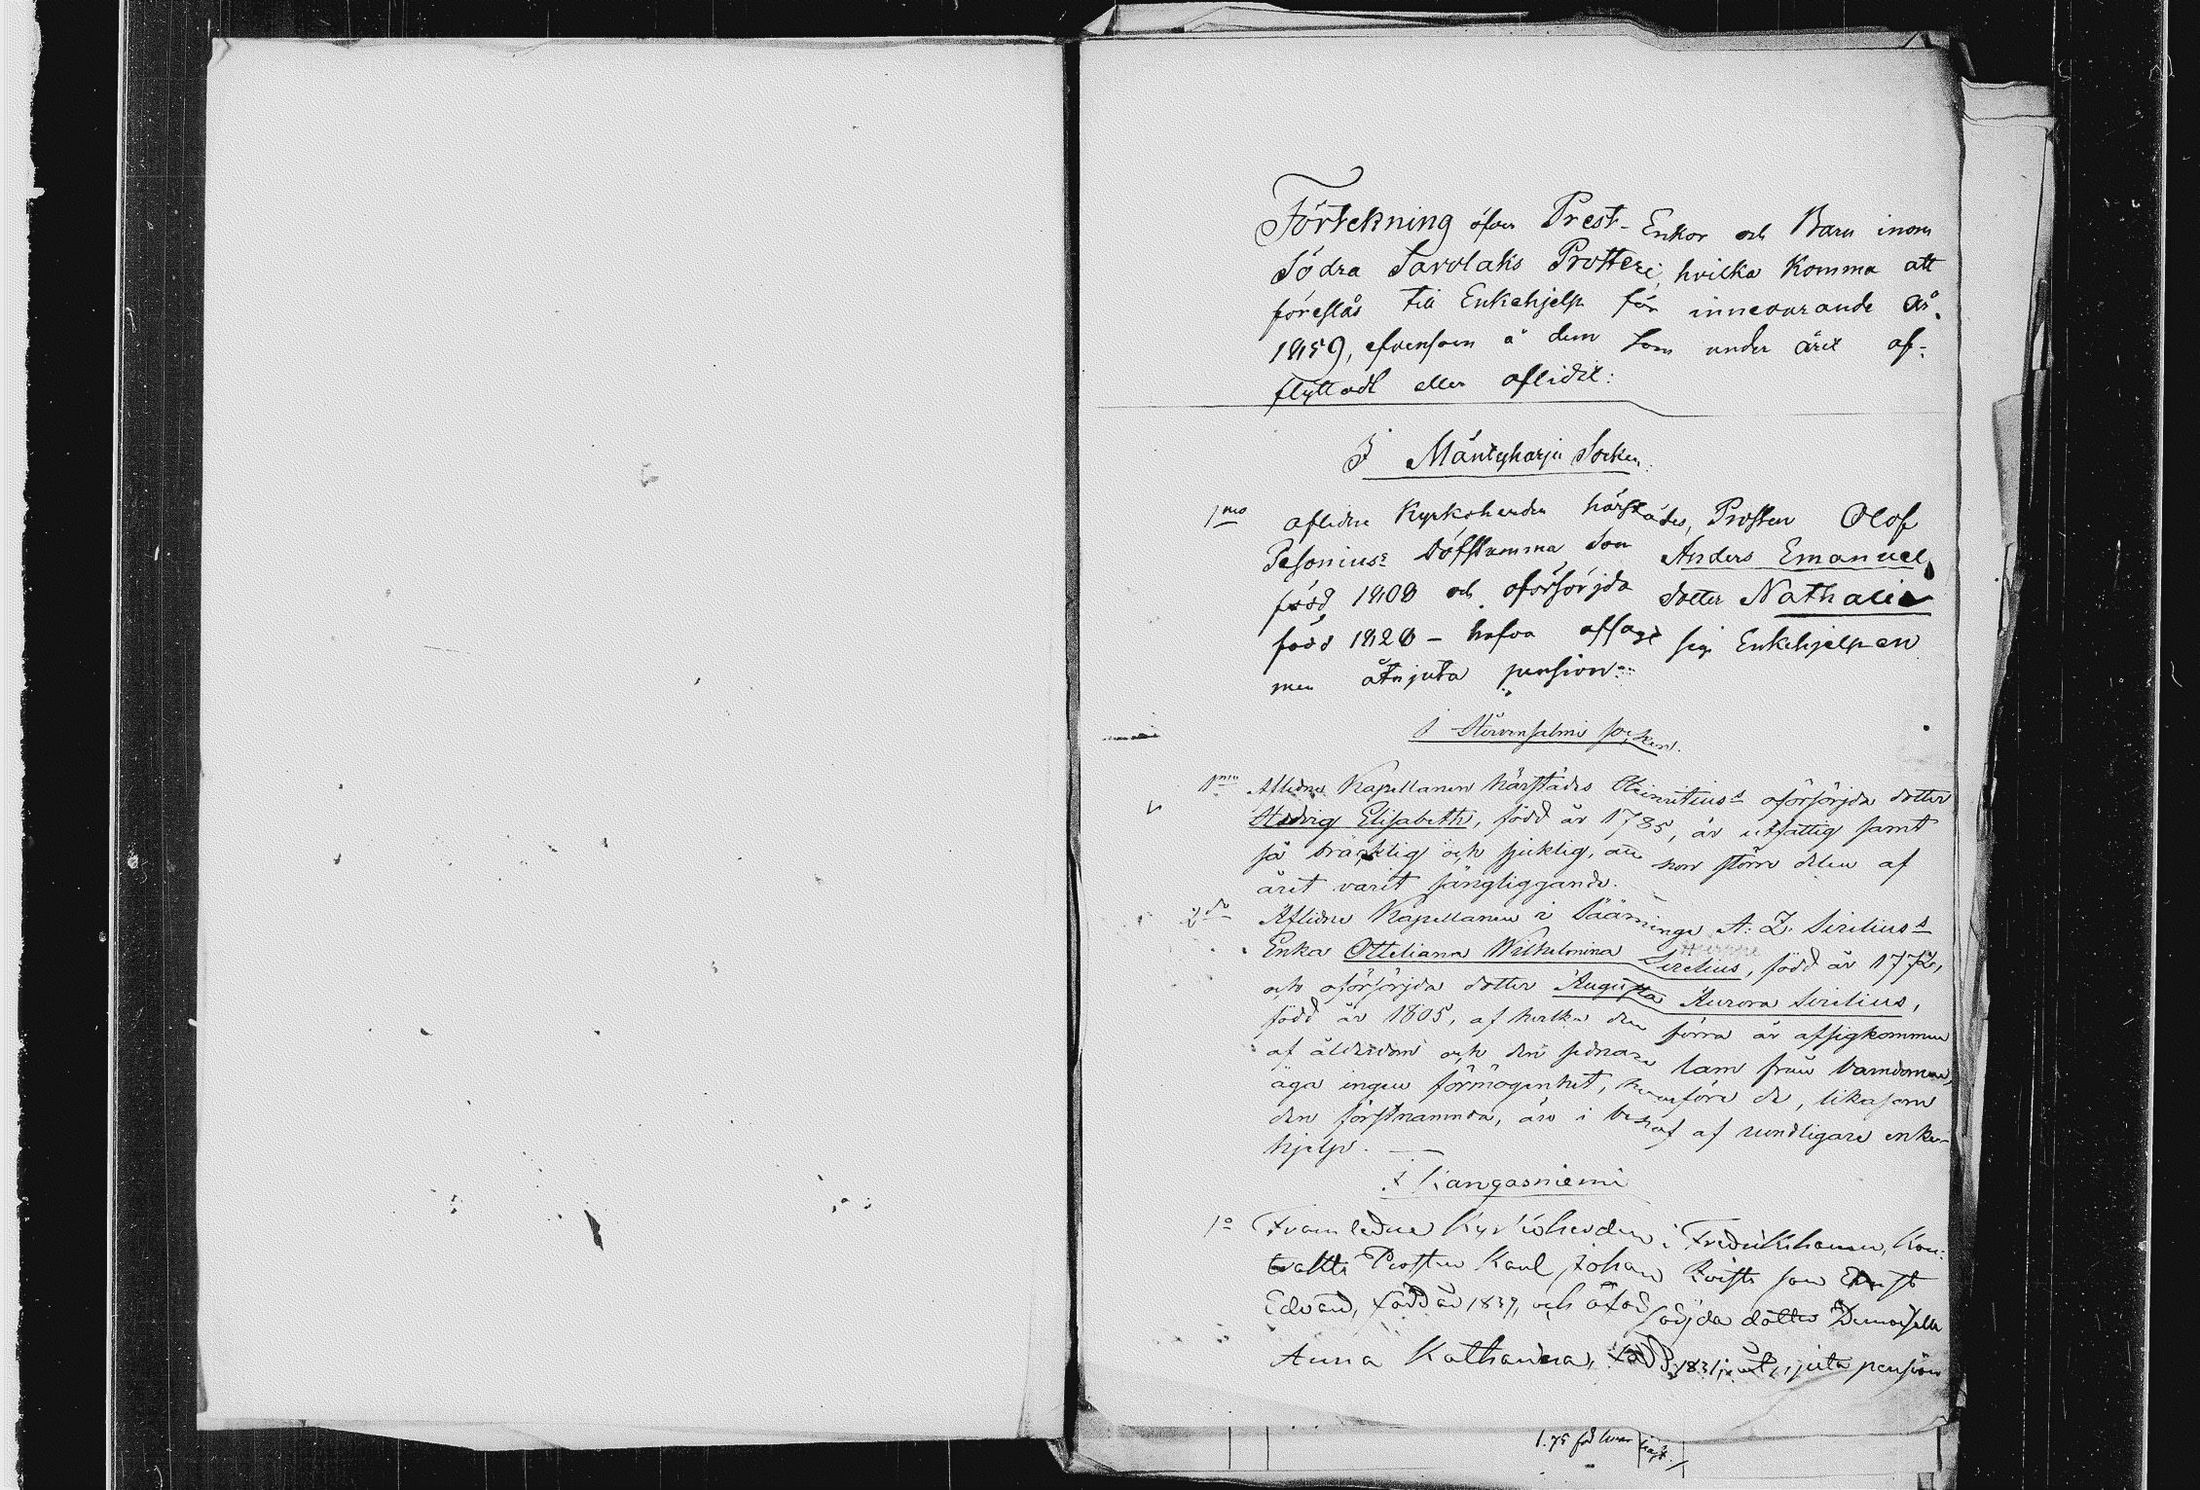 Förtekning öfver Prest-Enkor och Barn inom
Södra Savolaks Prosteri, hvilka komma att
föreslås till Enkehjelp för innevarande år
1859, äfvensom å dem som under året af-
flyttadt eller aflidit:
I Mäntyharju Socken.
1mo aflidne Kyrkoherden härstädes, Prosten Olof
Pesonius's döfstumma Son Anders Emanuel
född 1808 och oförsörjda dotter Nathalia
född 1828 – hafva afsagt sig Enkehjelpen
men åtnjuta pension.
I Hirvensalmi socken.
1mo Aflidne Kapellanen härstädes oförsörjda dotter
Hedvig Elisabeth, född år 1785, är utfattig samt
så bräcklig och sjuklig, att hon större delen af
året varit sängliggande.
2do Aflidne Kapellanen i Sääminge A. Z. Sirelius's
Enka Otteliana Wilhelmina Sirelius, född år 1772,
och oförsörjda dotter Augusta Aurora Sirelius,
född år 1805, af hvilka den förra är afsigkommen
af ålderdom och den sednare lam från barndomen,
äga ingen förmögenhet, hvarföre de, likasom
den förstnämnda, äro i behof af rundligare enke-
hjelp.
I Kangasniemi
1o Framledne Kyrkoherden i Fredrikshamn, Kon-
trakts Prosten Karl Johan son Ernst
Edvard, född år 1839, och oför sörjda dotter Demoiselle
Anna Katharina, född 1831, åtnjuta pension
1.75 för hvar